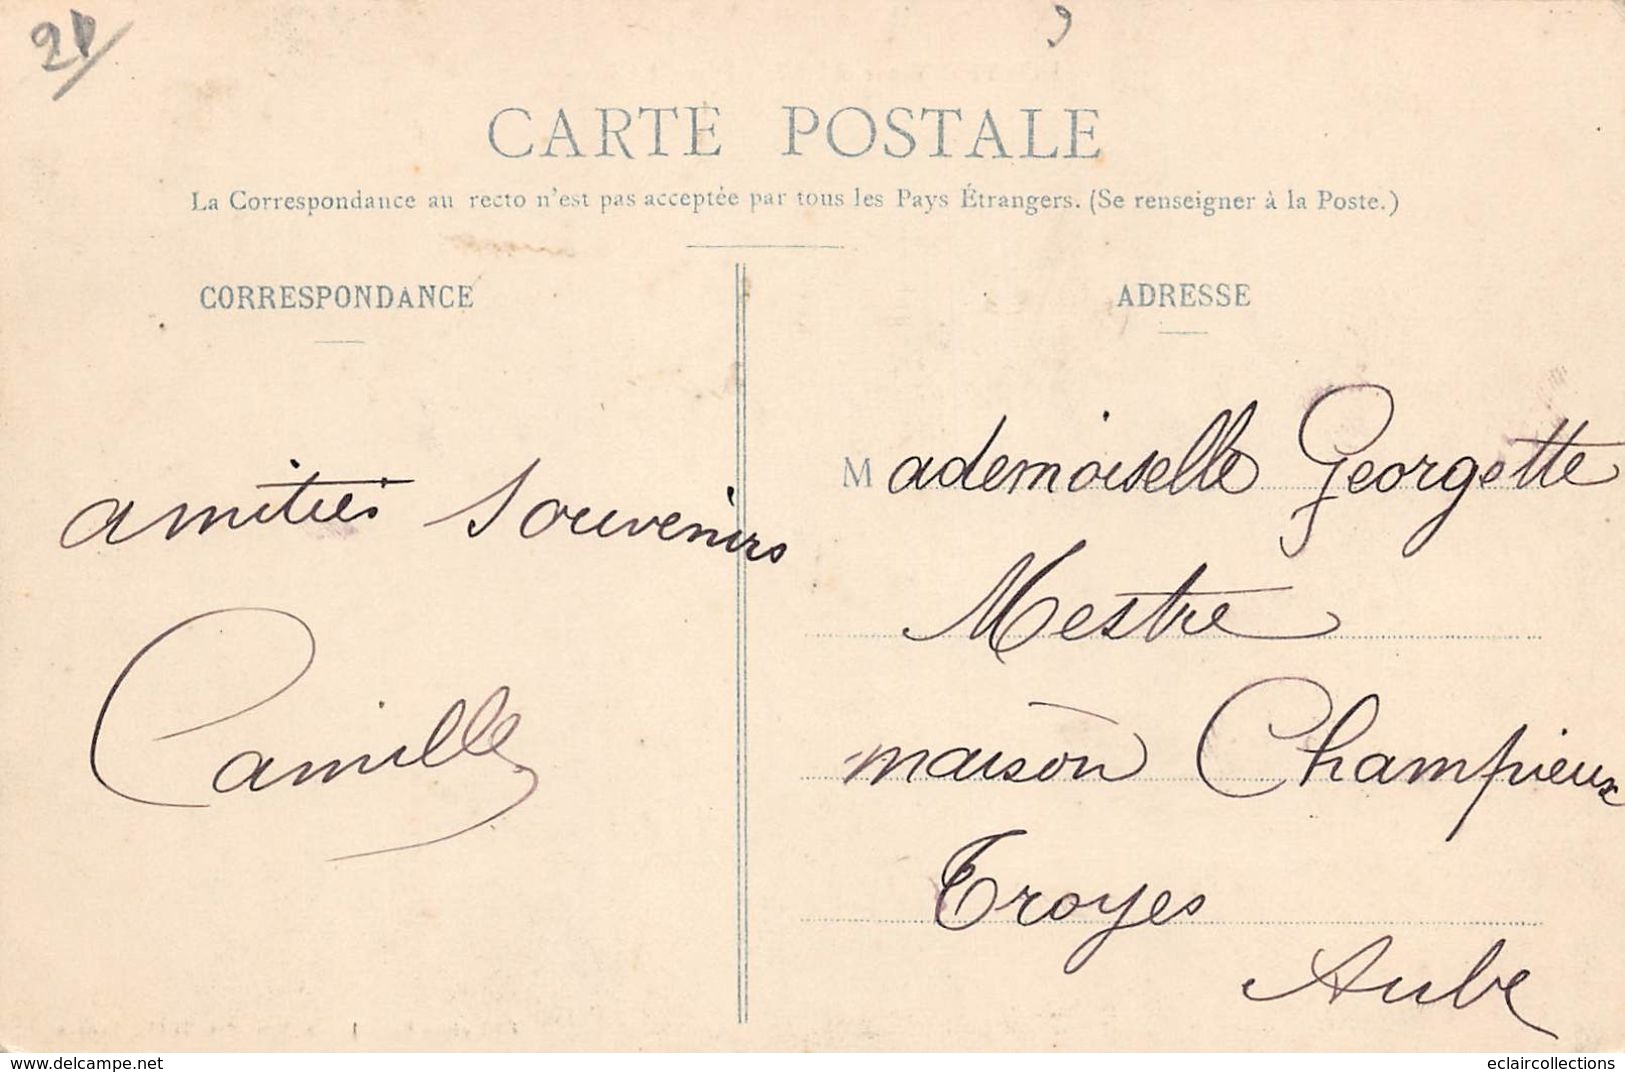 21
CARTE POSTALE
La Correspondance au recto n'est pas acceptée par tous les Pays Étrangers. (Se renseigner à la Poste.)
CORRESPONDANCE
amitiés souvenirs
Camille
ADRESSE
Mademoiselle Georgette
Mestre
maison Champieux
Troyes
Aube
www.delcampe.net
eclaircollections